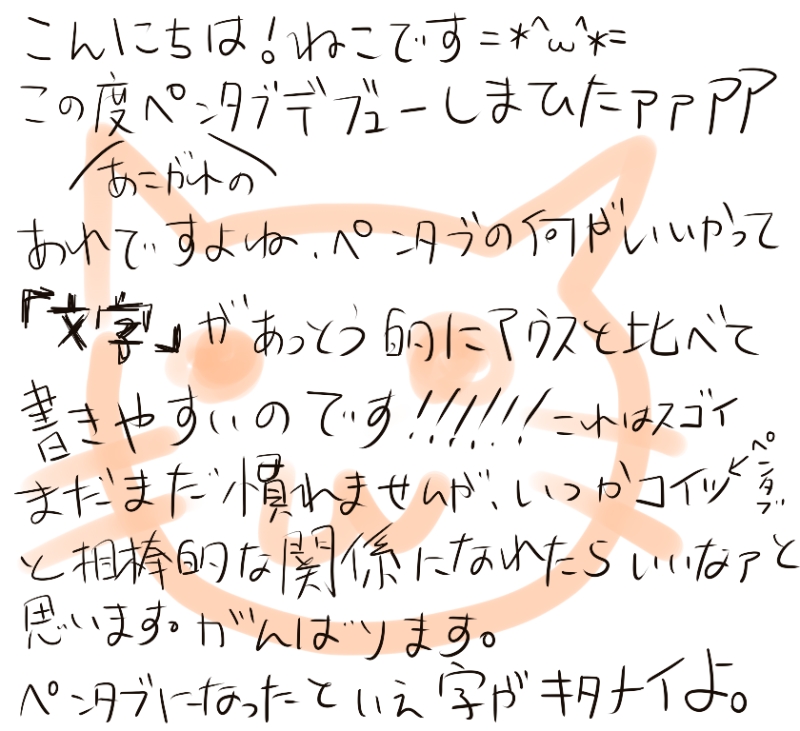 こんにちは！ねこです=*^ω^*=
この度ペンタブデブューしまひたァァアア
あこがれの
あれですよね、ペンタブの何がいいかって
『文字』があっとう的にマウスと比べて
書きやすいのです!!!!!!!これはスゴイ
まだまだ慣れませんが、いつかコイツ←ペンタブ
と相棒的な関係になれたらいいなァと
思います。がんばります。
ペンタブになったといえ字がキタナイよ。